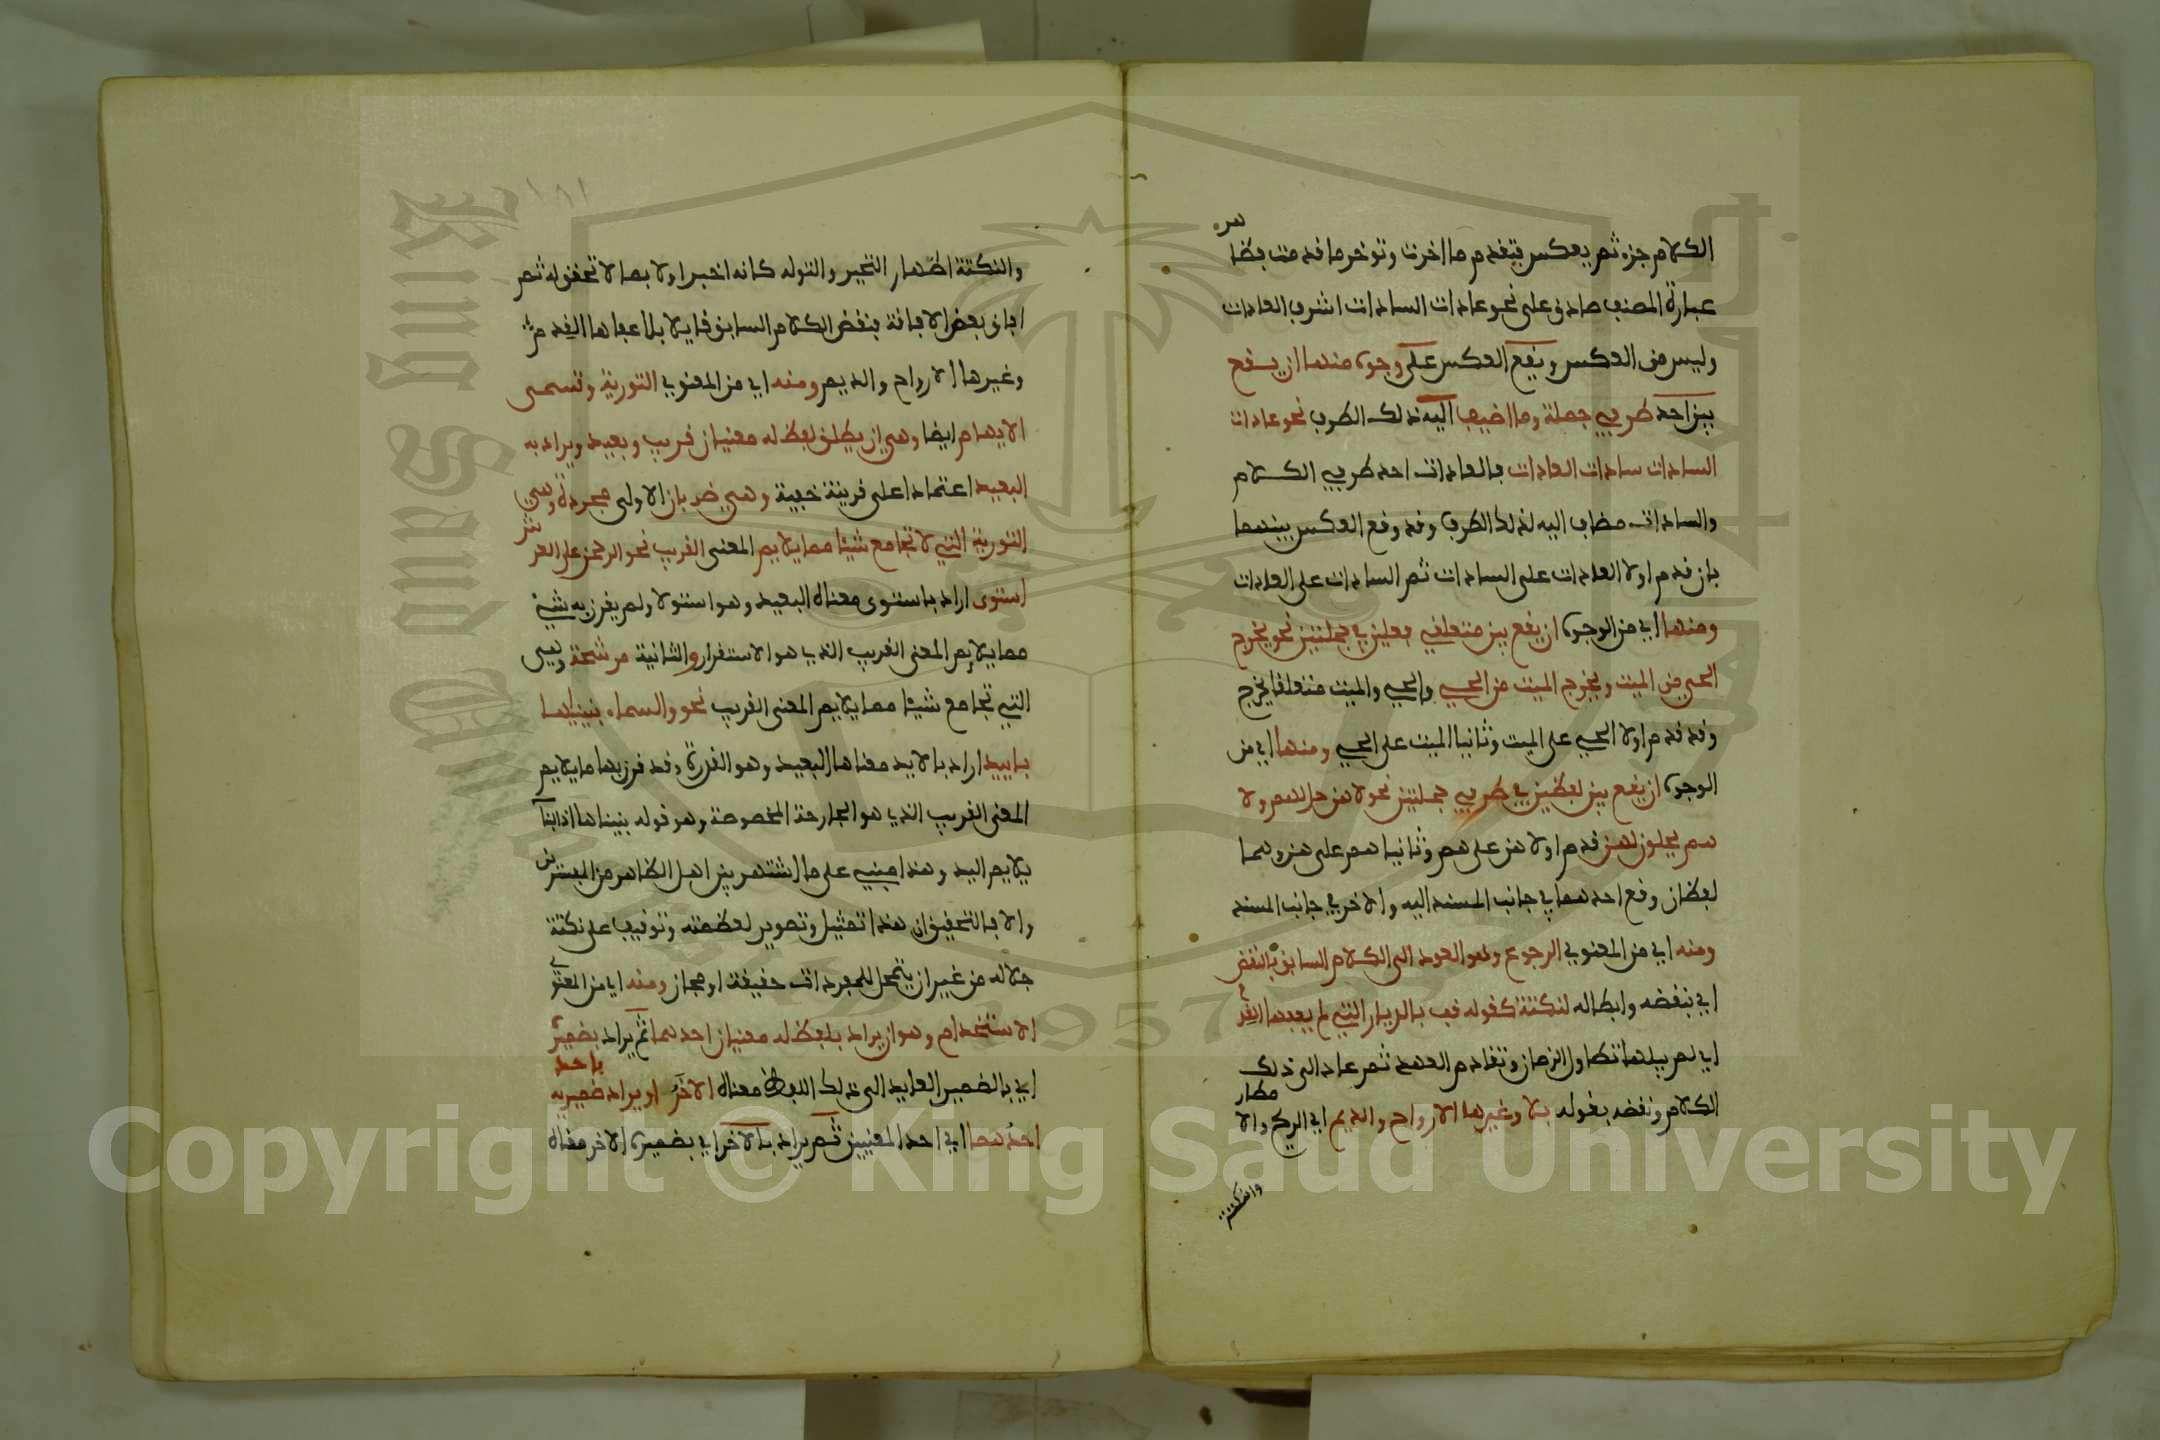 الكلام جزء ثم يعكس فيقدم ما اخرت وتوخر ما قدمت فظا
هره
عبارة المصنف صادق على نحو عادات السادات اشرف العادات
وليس من العكس ويقع العكس على وجوه منها ان يقع
بين احد طرفي جملة وما اضيف اليه ذلك الطرف نحو عادات
السادات سادات العادات فالعادات احد طرفي الكلام
والسادات مضاف اليه لذلك الطرف وقد وقع العكس بينهما
بان قدم اولا العادات على السادات ثم السادات على العادات
ومنها اي من الوجوه ان يقع بين متعلقي فعلين في جملتين نحو يخرج
الحي من الميت ويخرج الميت من الحي والحي والميت متعلقا يخرج
وقد قدم اولا الحي على الميت وثانيا الميت على الحي ومنها اي من
الوجوه ان يقع بين لفظين في طرفي جملتين نحو لا هن حل لهم ولا
هم يحلون لهن قدم اولا هن على هم وثانيا هم على هن وهما
لفظان وقع احدهما في جانب المسند اليه والاخر في جانب المسند
ومنه اي من المعنوي الرجوع وهو العود الى الكلام السابق بالنقض
اي بنقضه وابطاله لنكتة كقوله قف بالديار التي لم يعفها القد
م
اي لم يبلها تطاول الزمان وتقادم العهد ثم عاد الى ذلك
الكلام ونقضه بقوله بلا وغيرها الارواح والديم اي الريح والا
مطار
والنكتة
١٨١
والنكتة اظهار التحير والتوله كانه اخبر اولا بما لا تحقق له ثم
افاق بعض الافاقة فنقض الكلام السابق قايلا بلا عفاها القدم
وغيرها الارواح والديم ومنه اي من المعنوي التورية وتسمى
الايهام ايضا وهي ان يطلق لفظ له معنيان قريب وبعيد ويراد به
البعيد اعتمادا على قرينة خفية وهي ضربان الاولى مجردة وهي
التورية التي لا تجامع شيئا مما يلايم المعنى القريب نحو الرحمن على العر
ش
استوى اراد باستوى معناه البعيد وهو استولا ولم يقرن به شيء
مما يلايم المعنى القريب الذي هو الاستقرار والثانية مرشحة وهي
التي تجامع شيئا مما يلايم المعنى القريب نحو والسماء بنيناها
بايد اراد بالايد معناها البعيد وهو القدرة وقد قرن بها ما يلايم
المعنى القريب الذي هو الجارحة المخصوصة وهو قوله بنيناها اذ البنا
يلايم اليد وهذا مبني على ما اشتهر بين اهل الظاهر من المفسرين
والا فالتحقيق ان هذا تمثيل وتصوير لعظمته وتوقيف على نكتة
جلاله من غير ان يتمحل للمفردات حقيقة او مجاز ومنه اي من المعنوي
الاستخدام وهو ان يراد بلفظ له معنيان احدهما ثم يراد بضميره
اي بالضمير العايد الى ذلك اللفظ معناه الاخر او يراد ضميريه
باحد
احدهما اي احد المعنيين ثم يراد بالاخر اي بضميره الاخر معناه